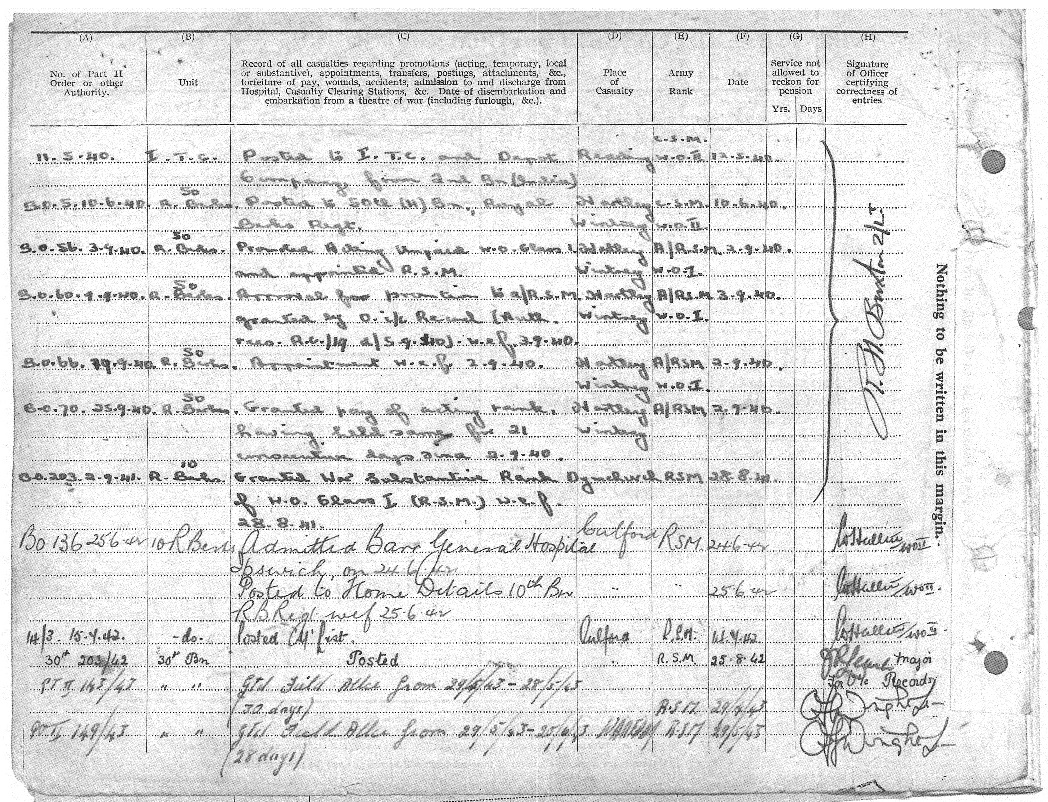 (A) (B) (C) (D) (E) (F) (G) (H)
No. of Part II Order or other Authority.
Unit
Record of all casualties regarding promotions (acting, temporary, local
or substantive), appointments, transfers, postings, attachments, &c.,
forfeiture of pay, wounds, accidents, admission to and discharge from
Hospital, Casualty Clearing Stations, &c. Date of disembarkation and
embarkation from a theatre of war (including furlough, &c.).
Place of Casualty
Army Rank
Date
Service not allowed to reckon for pension
Yrs. Days
Signature of Officer certifying correctness of entries
C.S.M.
11.5.40. I.T.C. Posted to I.T.C. and Depot Reading W.O.II 12.5.40.
Company from 2nd Bn (India)
50
B.O.5.10.6.40. R. Berks. Posted to 50th (H) Bn, Royal Hartley C.S.M. 10.6.40.
Berks Regt. Wintney W.O.II
50
B.O.56. 3.9.40. R. Berks. Promoted Acting Unpaid W.O. Class I Hartley A/R.S.M 2.9.40.
and appointed R.S.M. Wintney W.O.I.
50
B.O.60. 9.9.40. R. Berks. Approval for promotion to a/R.S.M Hartley A/RSM 3.9.40.
granted by O. i/c Record (Auth. Wintney W.O.I.
d/5.9.40). w.e.f. 3.9.40.
50
B.O.66. 19.9.40. R. Berks. Appointment w.e.f 2.9.40. Hartley A/RSM 2.9.40.
Wintney W.O.I.
50
B.O.70. 25.9.40. R. Berks. Granted pay of acting rank, Hartley A/RSM 2.9.40
having held same for 21 Wintney
consecutive days since 2.9.40.
10
B.O.203. 2.9.41. R. Berks. Granted War Substantive Rank Dymchurch RSM 28.8.41
of W.O. Class I (R.S.M.) w.e.f.
28.8.41.
2/Lt
BO 136 25 6 42 10 R Berks Admitted Barr General Hospital Culford RSM 24 6 42
Ipswich, on 24 6/42
Posted to Home Details 10th Bn " " 25 6 42
R B Regt wef 25 6 42
WOII
14/3. 15.7.42. -do- Posted list. Culford R.S.M.
30th 203/42 30th Bn Posted R.S.M 25.8.42
Major
for O i/c Records
PT II 143/43 " " Gtd Field Allce from 29/4/43 - 28/5/43
(30 days) R.S.M 29/4/43
PT II 149/43 " " Gtd Field Allce from 29/5/43 - 25/6/43 R.S.M 29/5/43
(28 days)
Nothing to be written in this margin.